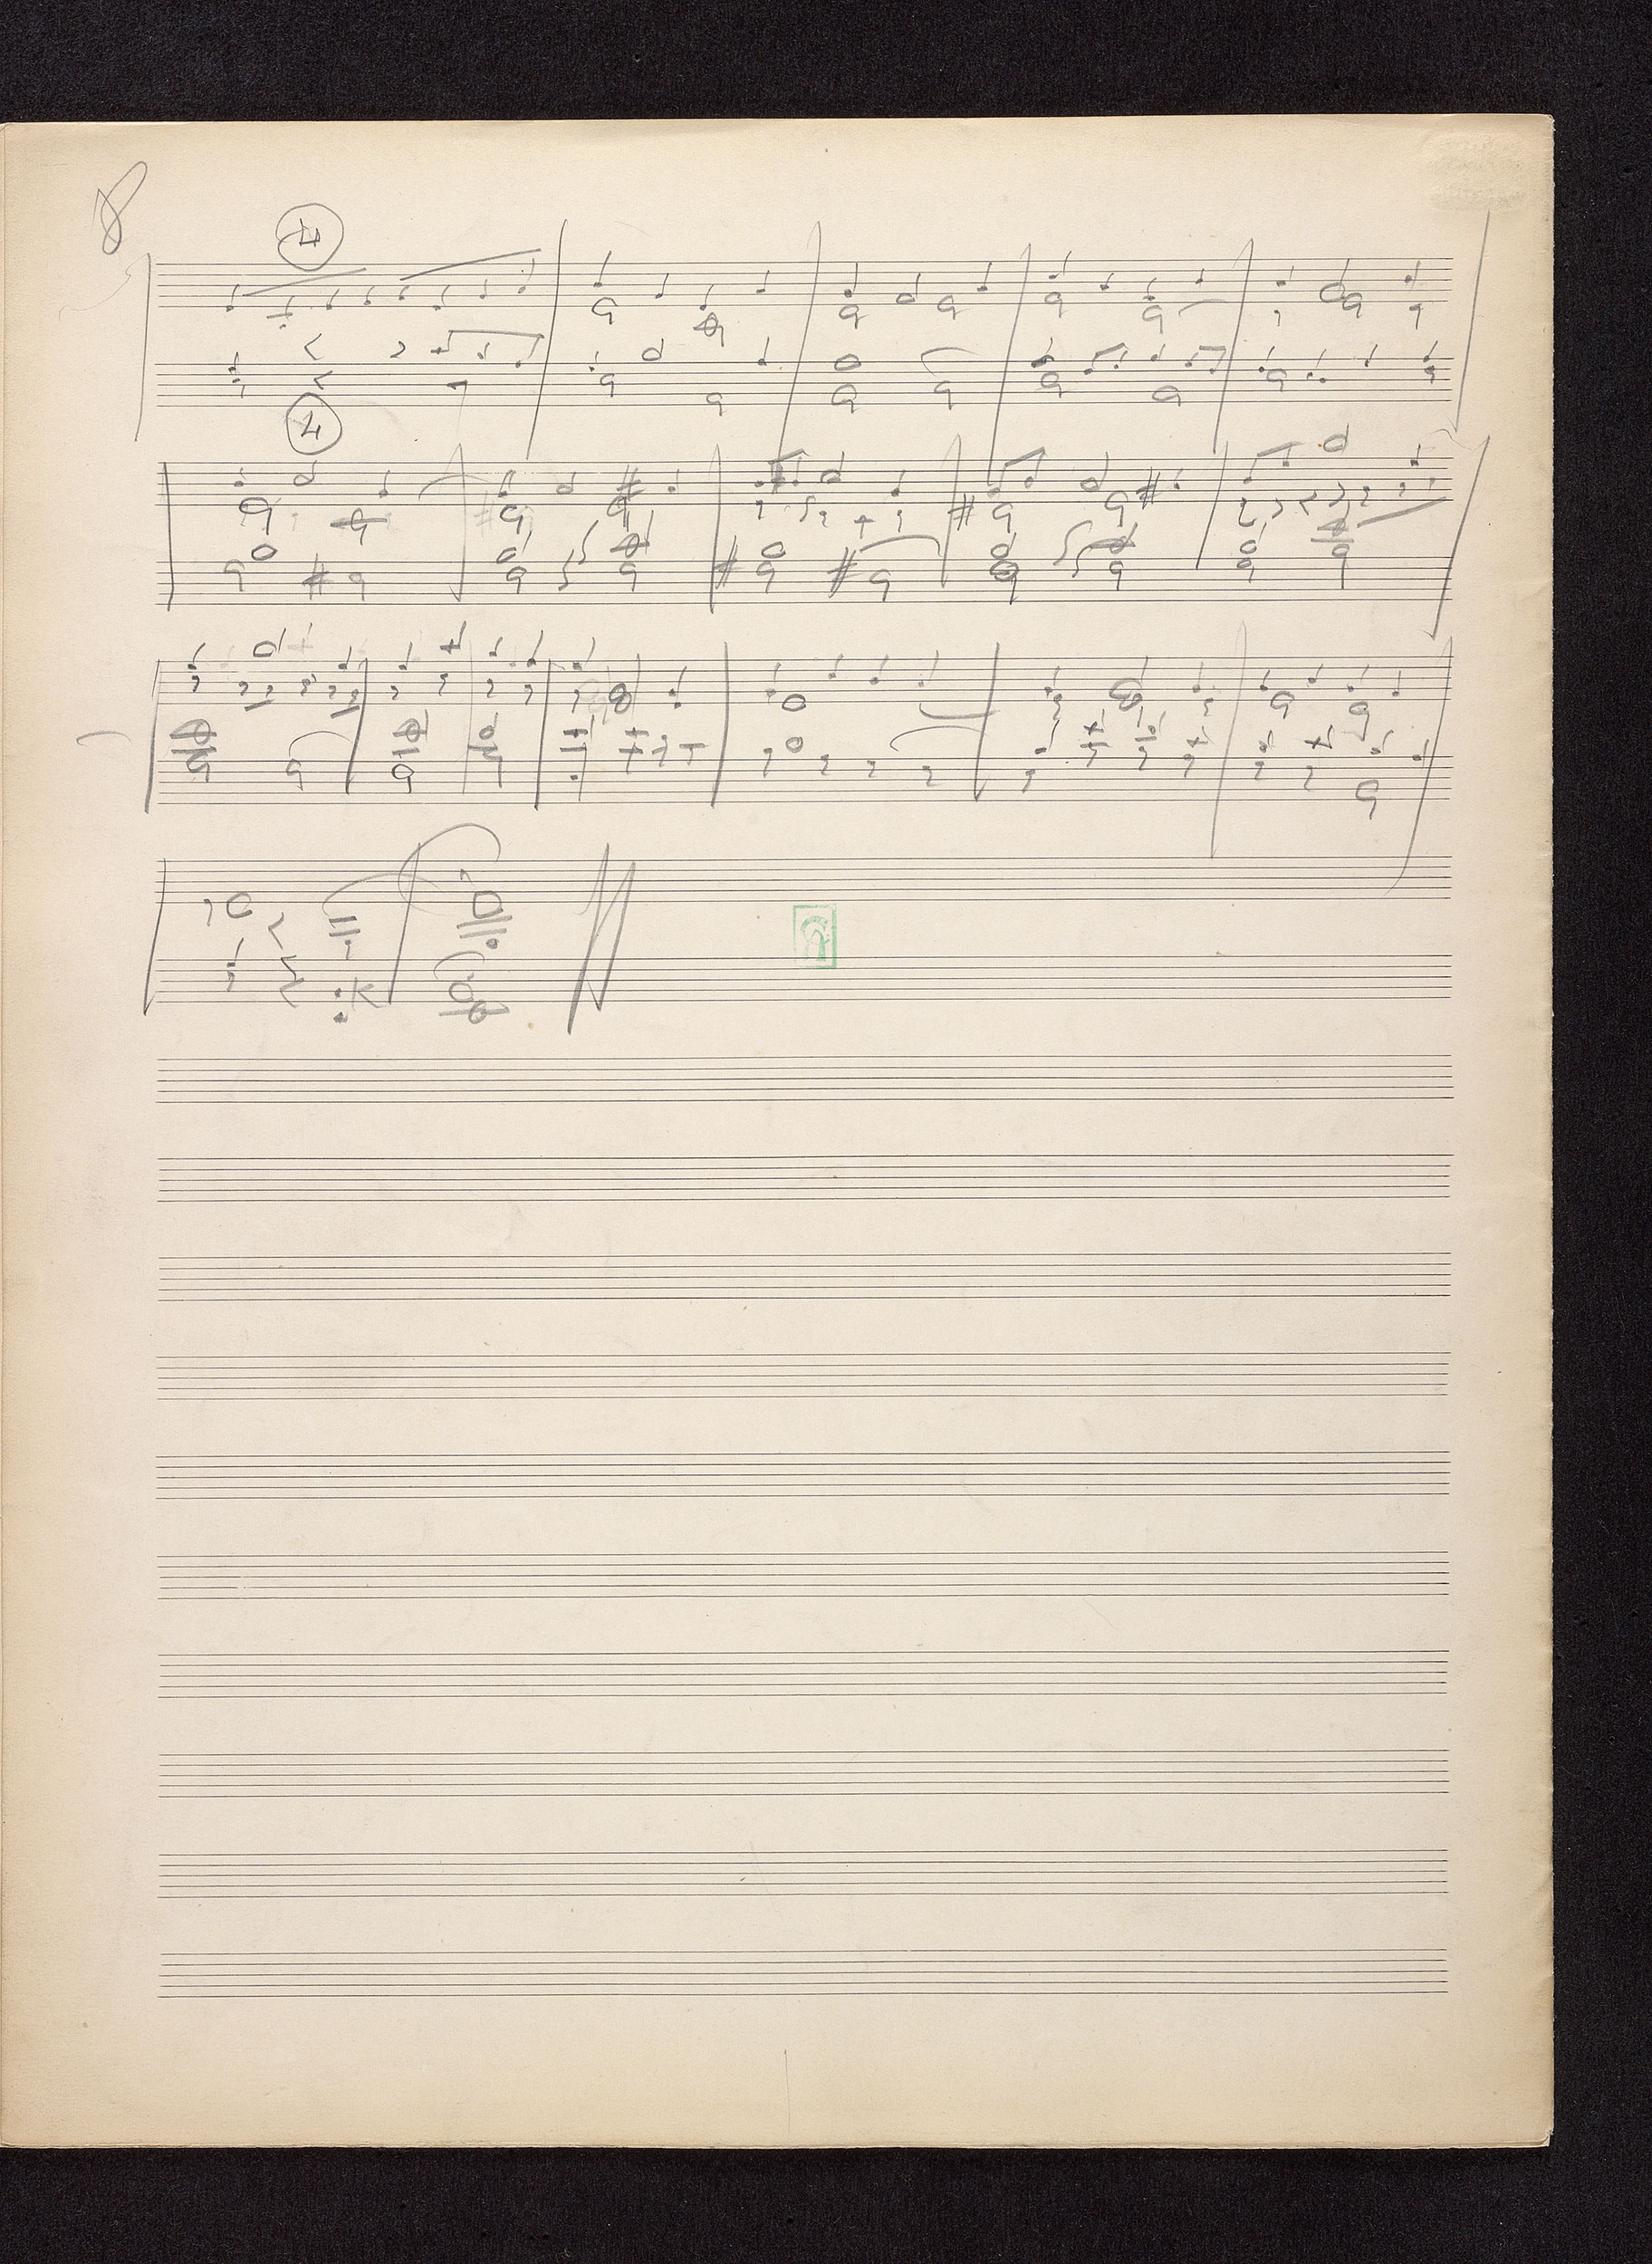 8
4
4